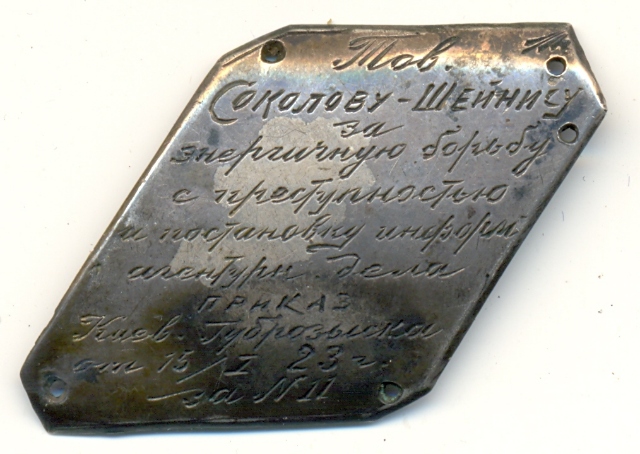 Тов.
Соколову-Шейницу
за
энергичную борьбу
с преступностью
и постановку информ
агентурн. дела
ПРИКАЗ
Киев. Губрозыска
от 15/I 23 г.
за N 11